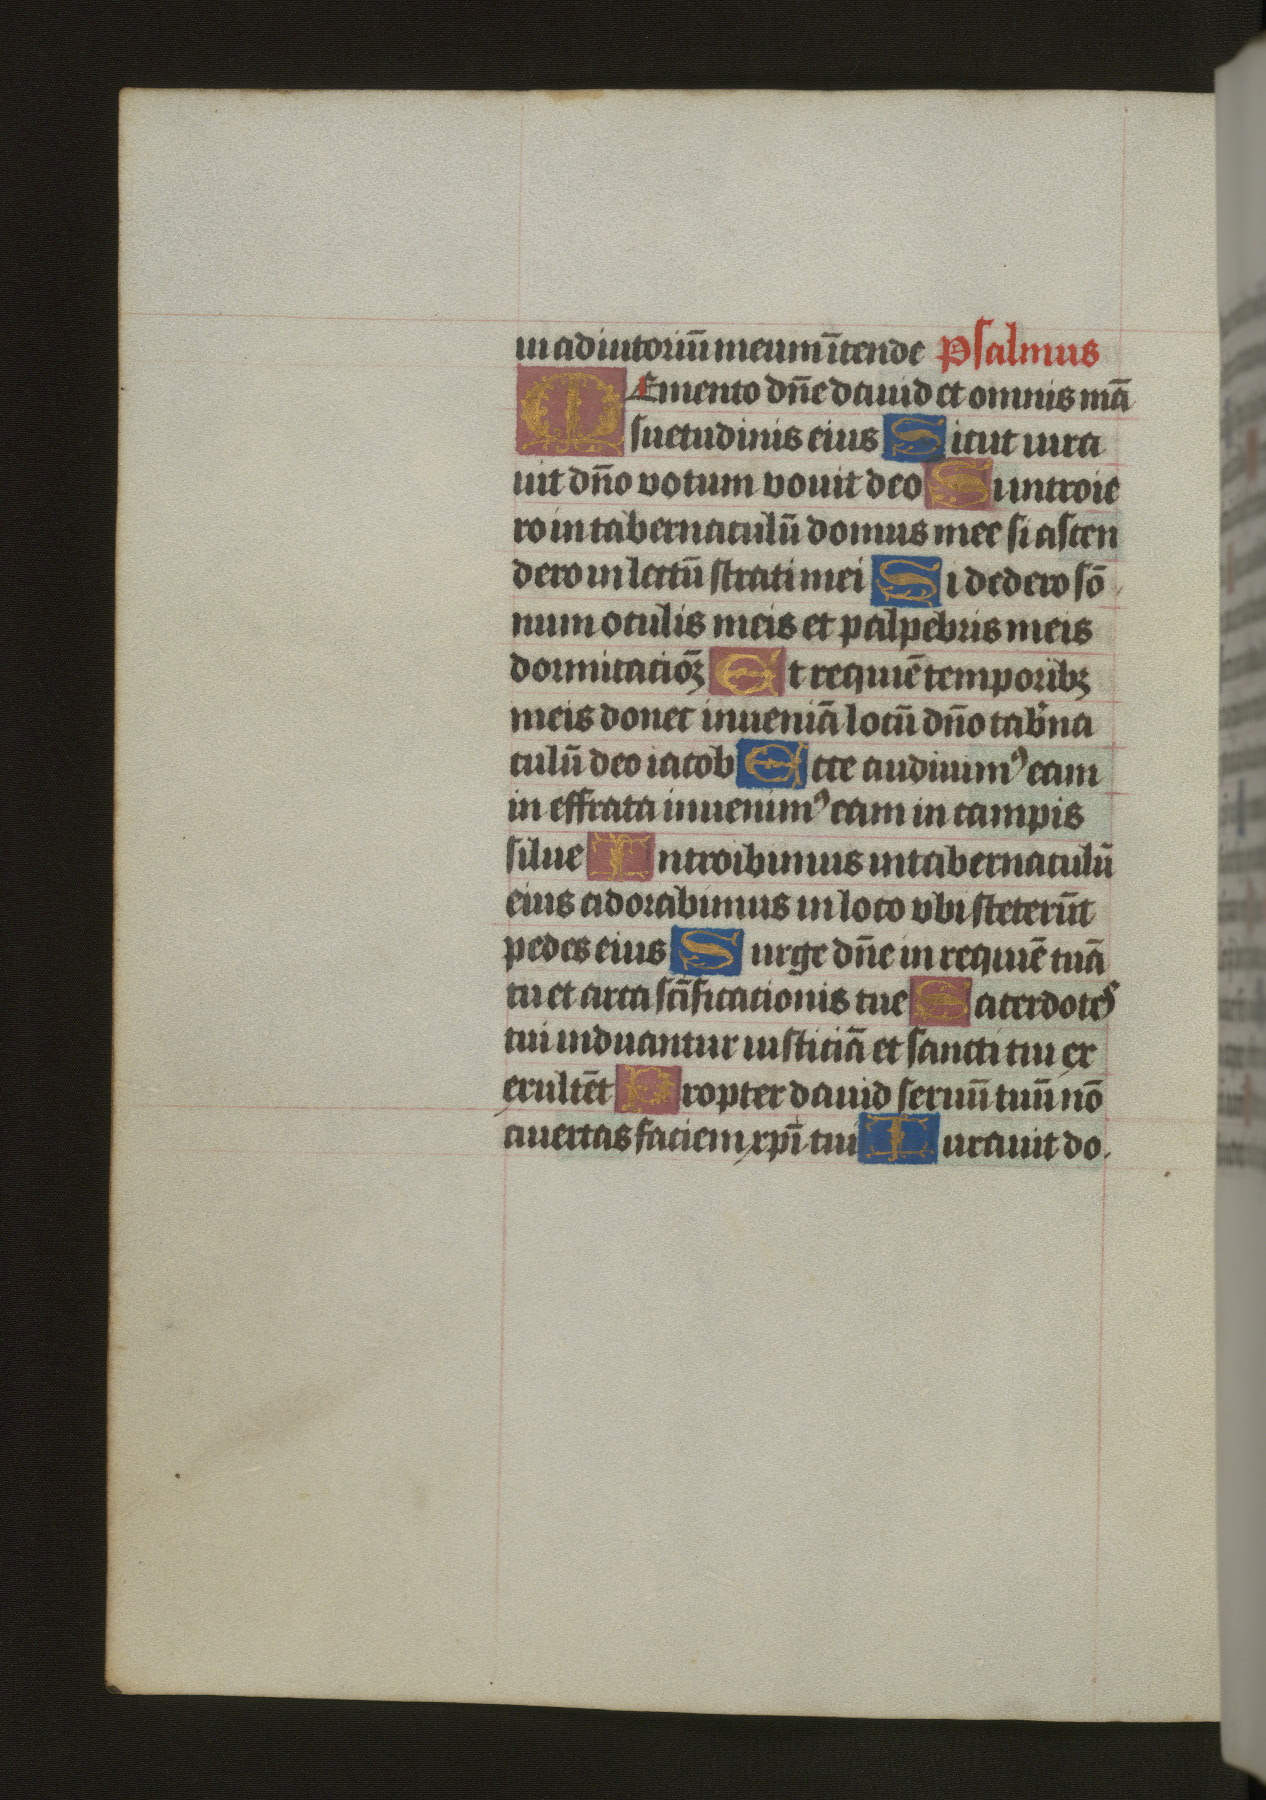 in adiutoriū meum ītende Psalmus
MEmento dn̄e dauid et omnis mā
suetudinis eius Sicut iura
uit dn̄o votum vouit deo Si introie
ro in tabernaculū domus mee si ascen
dero in lectū strati mei Si dedero sō
num oculis meis et palpebris meis
dormitacioꝫ̄ Et requiē temporibꝫ
meis donec inueniā locū dn̄o tab̄na
culū deo iacob Ecce audiuimꝰ eam
in effrata inuenimꝰ eam in campis
silue Introibimus in tabernaculū
eius adorabimus in loco vbi steterūt
pedes eius Surge dn̄e in requiē tuā
tu et arca sc̄ificationis tue Sacerdotes
tui induantur iusticiā et sancti tui ex
exultēt Propter dauid seruū tuū nō
auertas faciem xp̄i tui Iurauit do